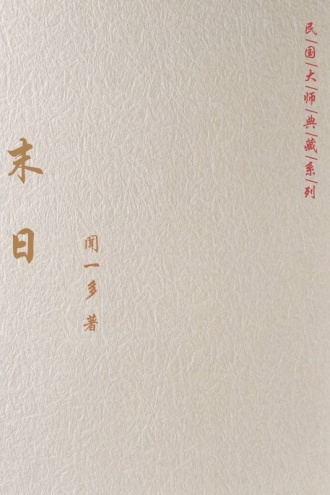 民国大师典藏系列
末日
闻一多 著